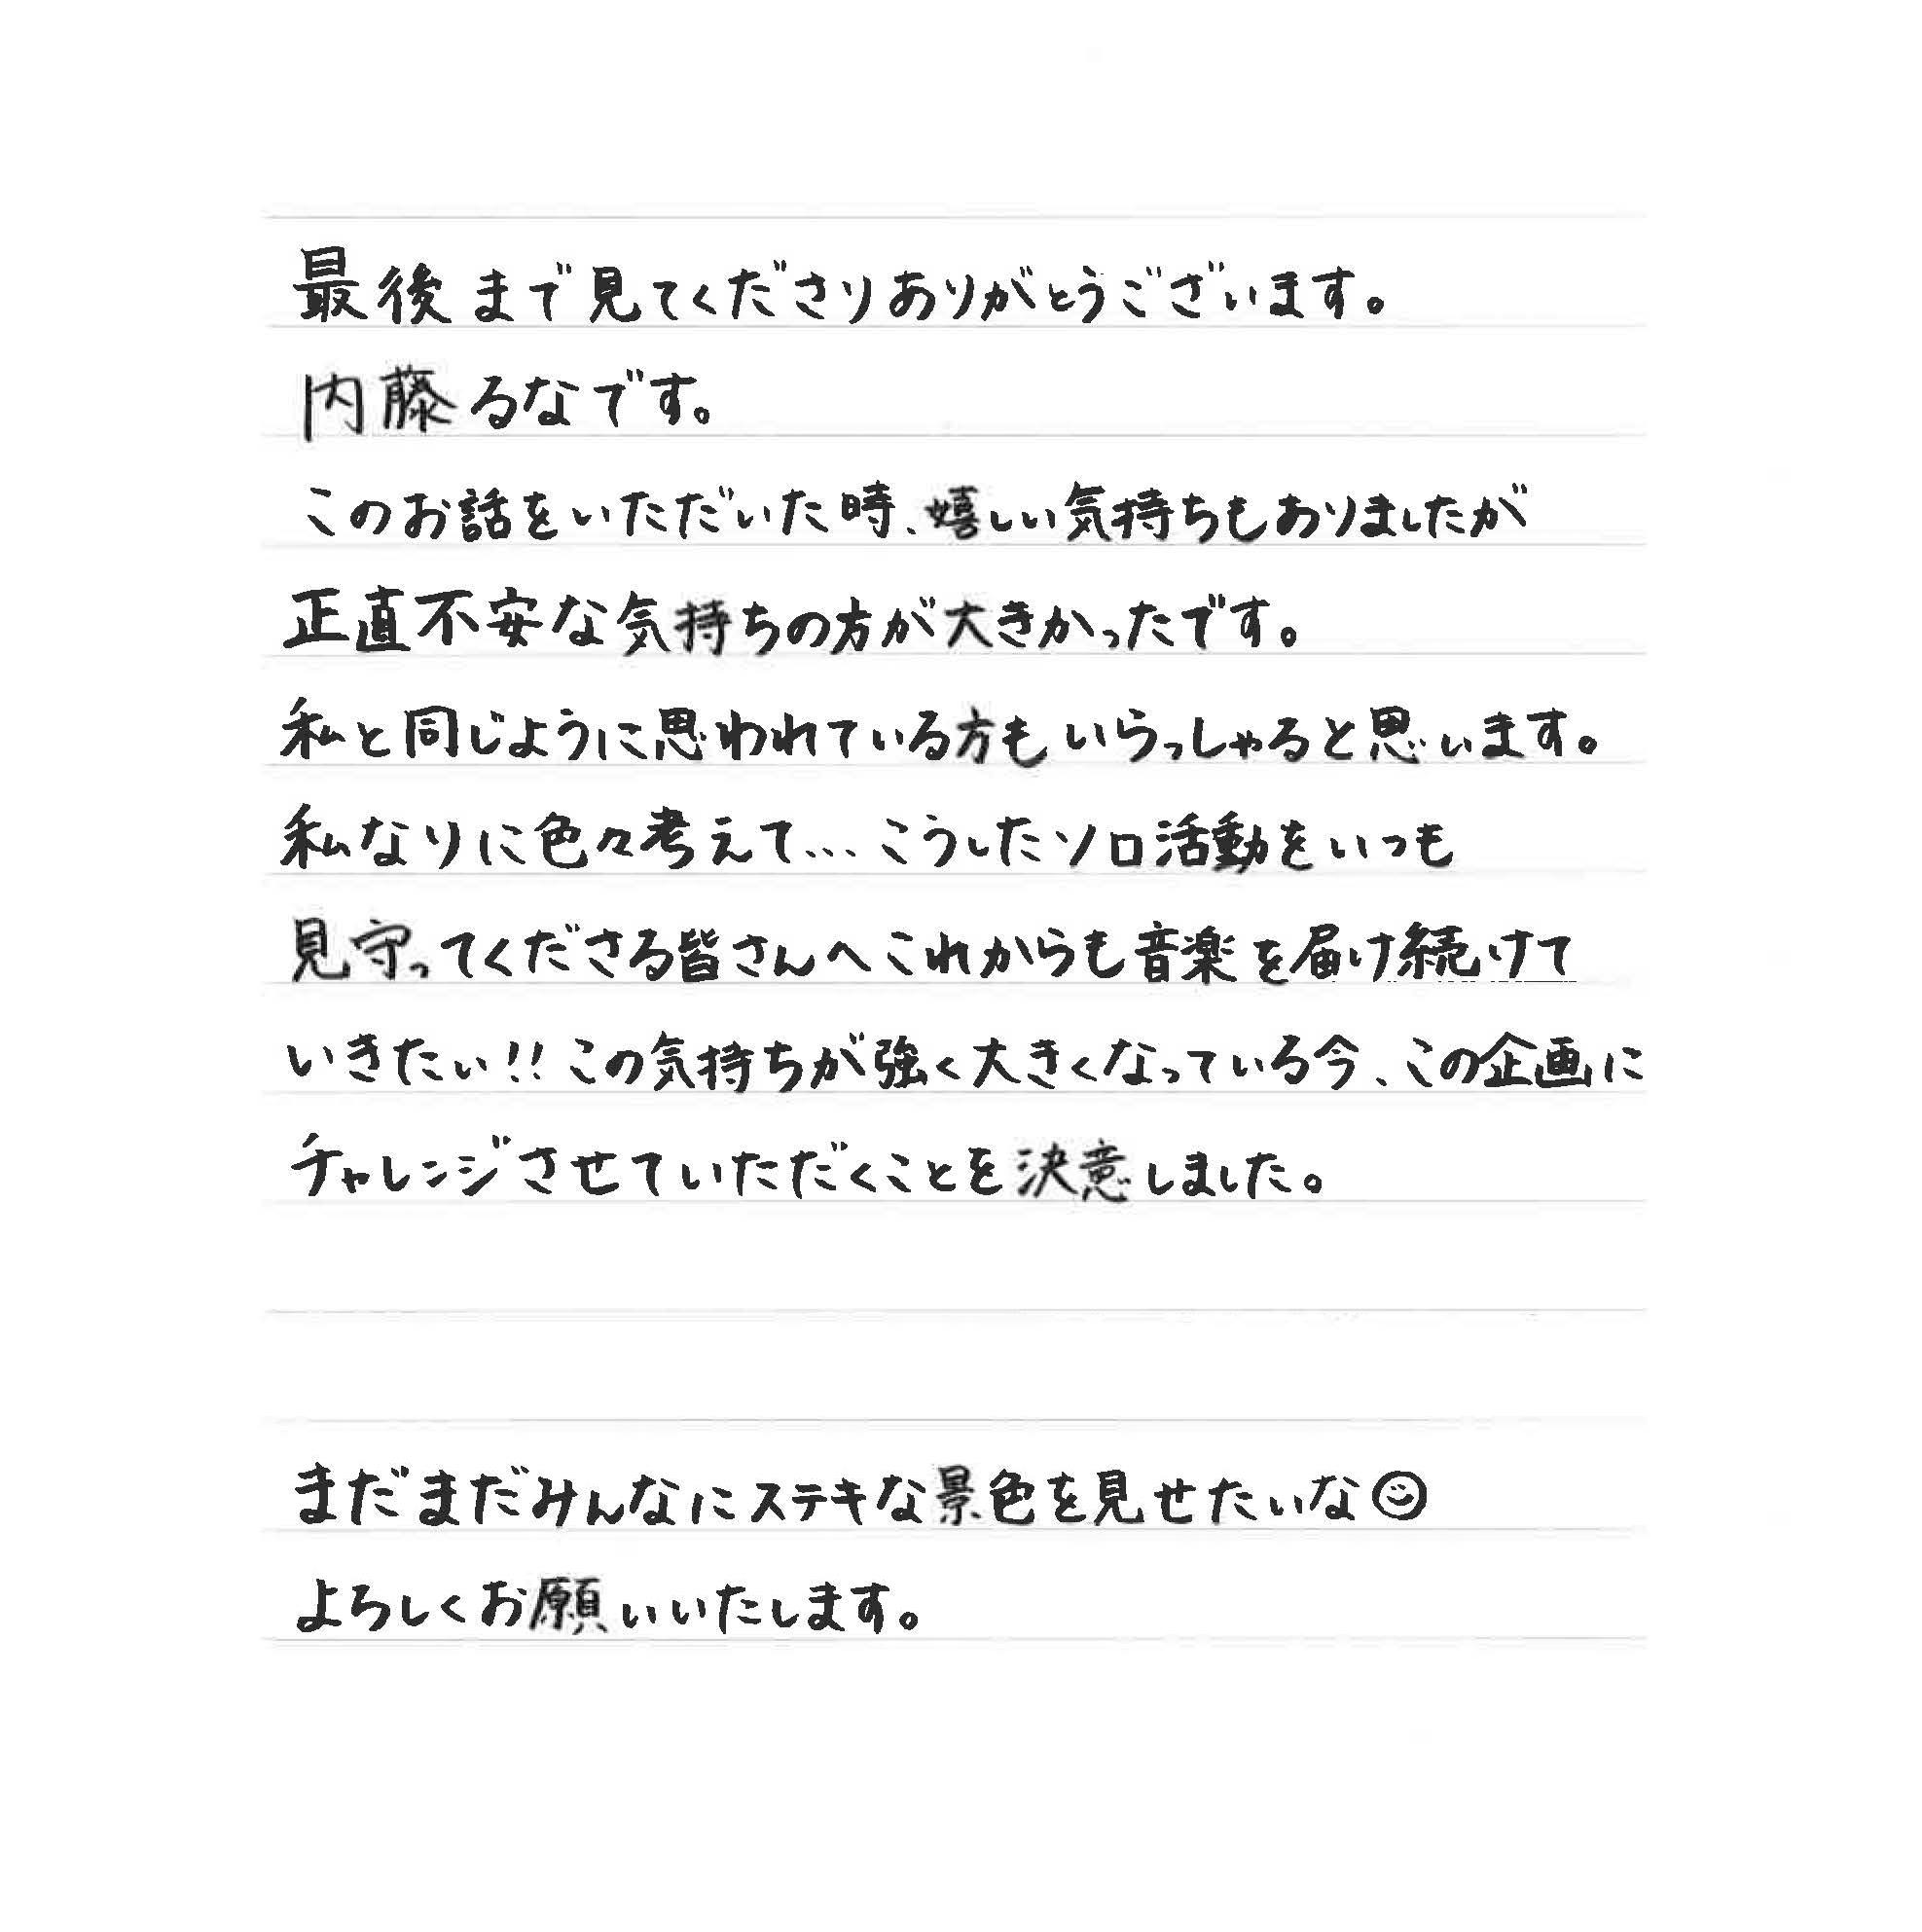 最後まで見てくださりありがとうございます。
内藤るなです。
このお話をいただいた時、嬉しい気持ちもありましたが
正直不安な気持ちの方が大きかったです。
私と同じように思われている方もいらっしゃると思います。
私なりに色々考えて...こうしたソロ活動をいつも
見守ってくださる皆さんへこれからも音楽を届け続けて
いきたい!!この気持ちが強く大きくなっている今、この企画に
チャレンジさせていただくことを決意しました。
まだまだみんなにステキな景色を見せたいな☺
よろしくお願いいたします。